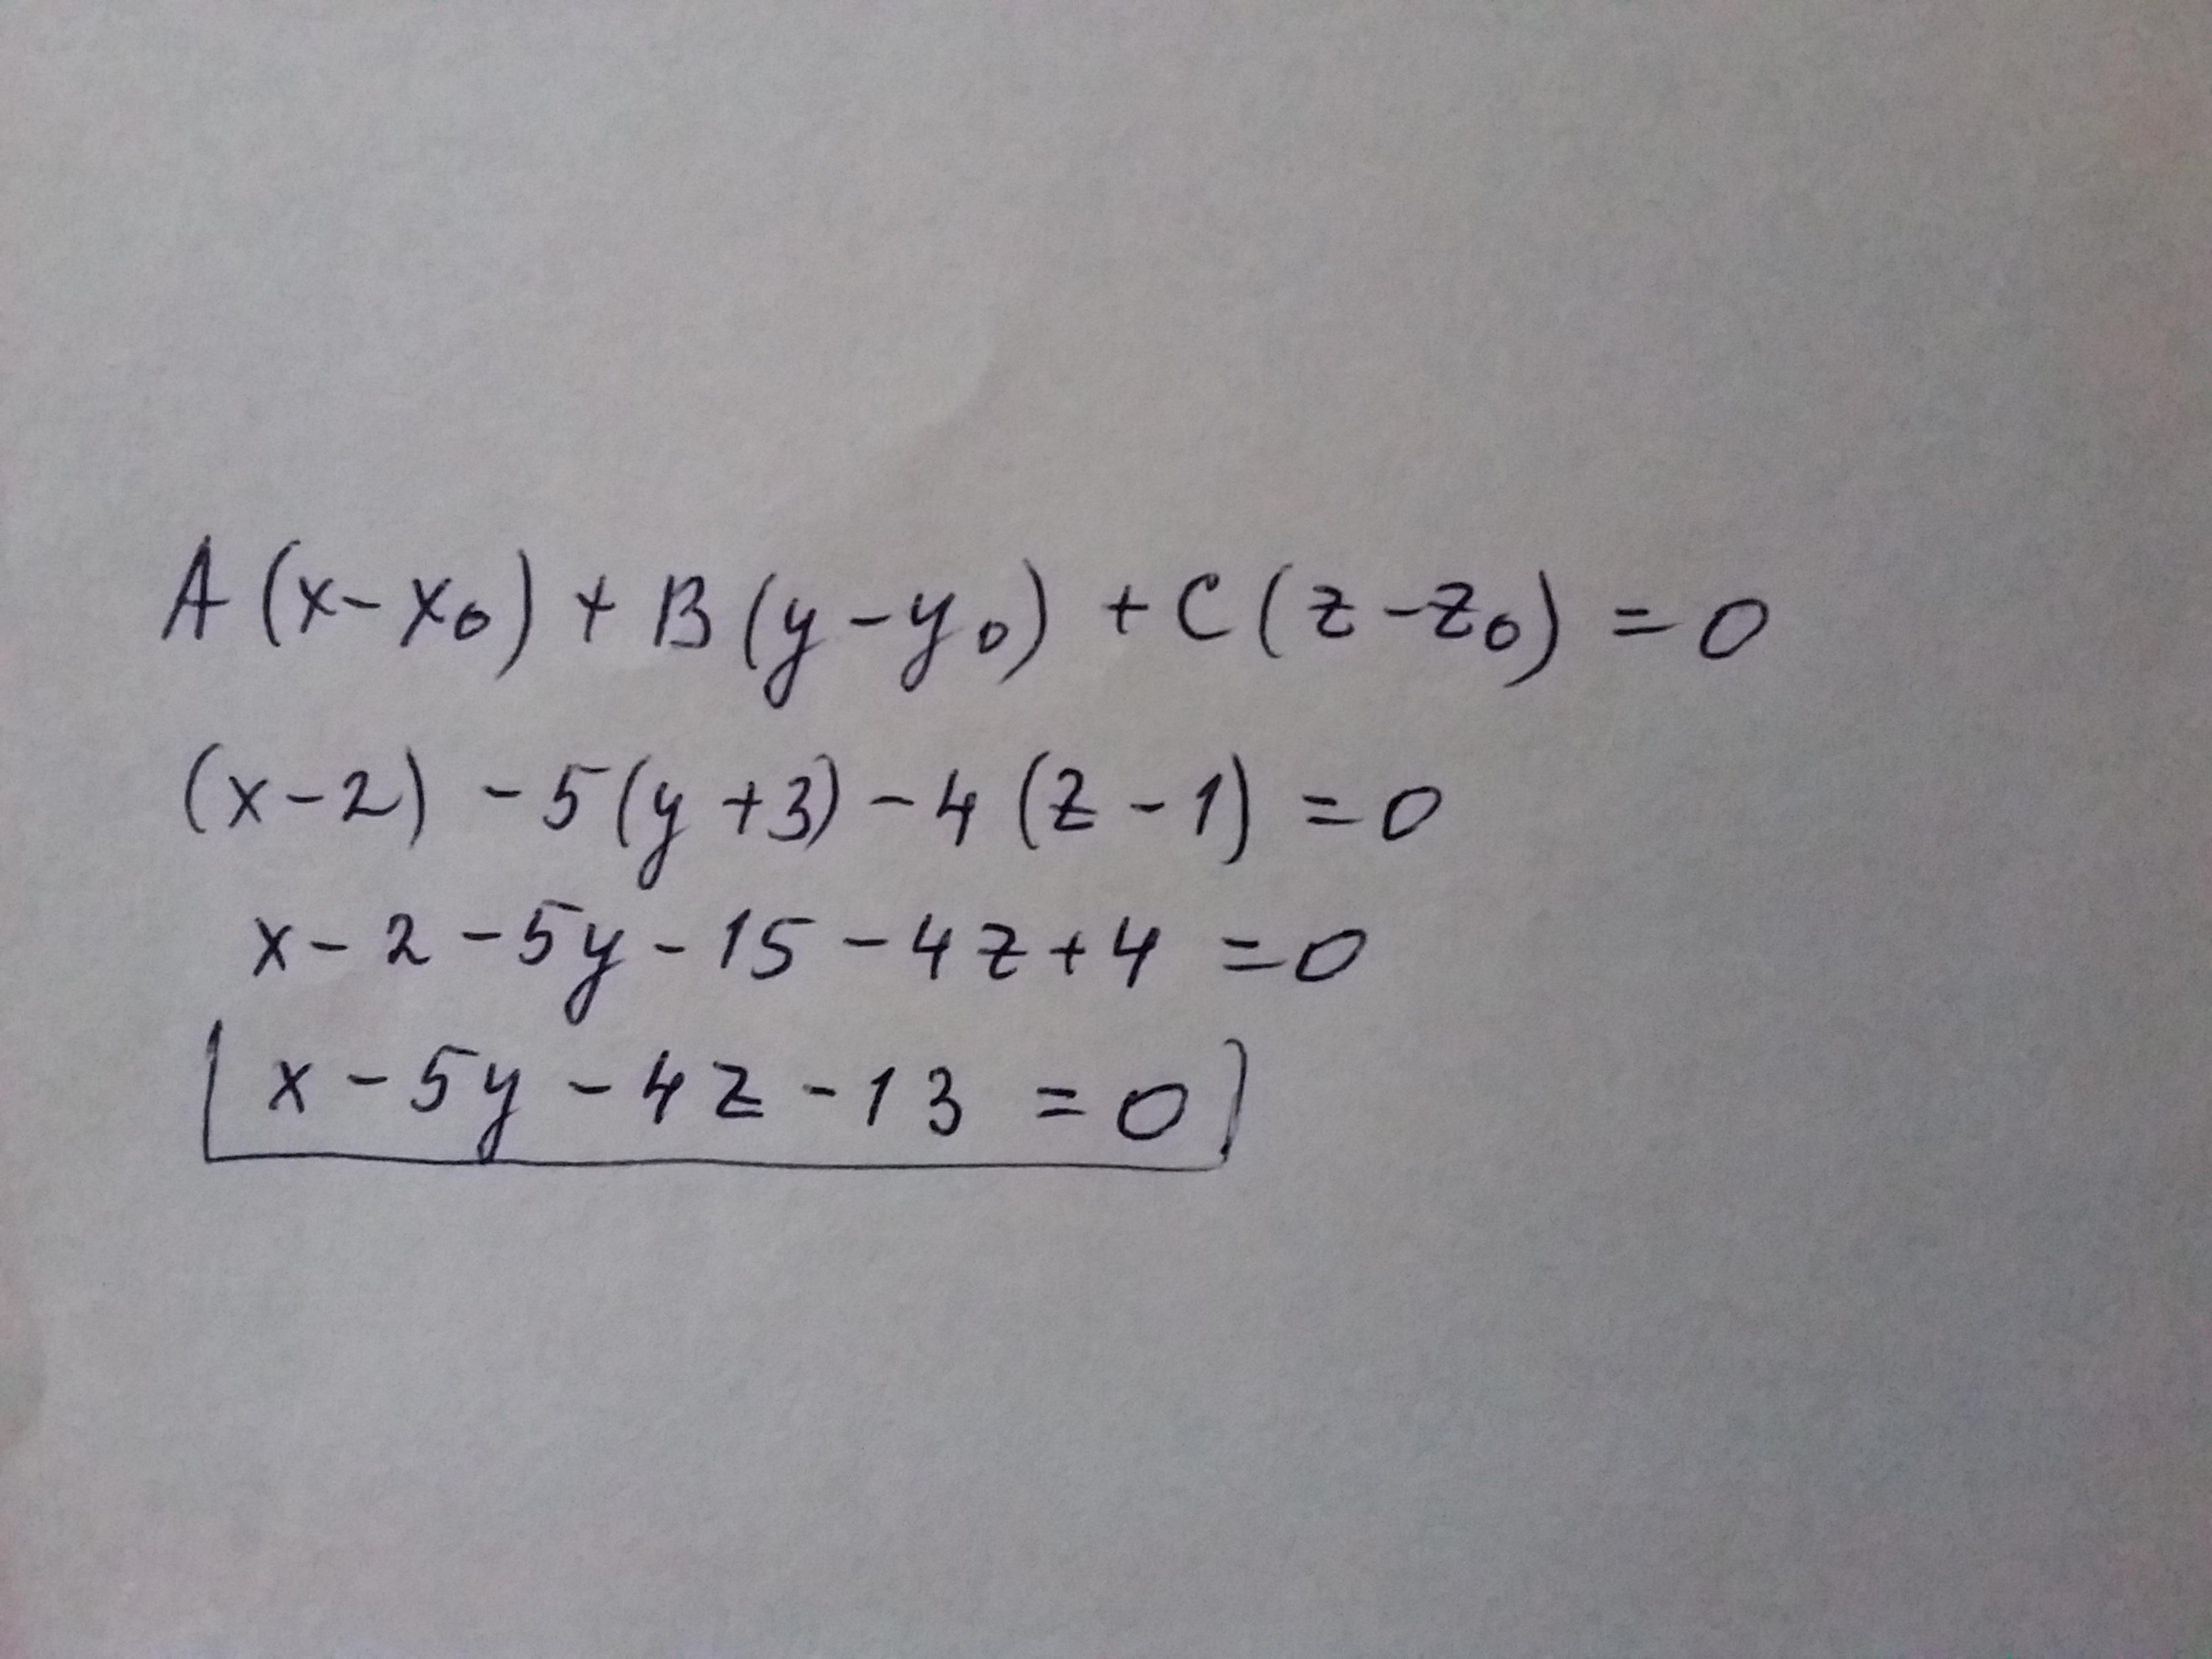 A(x-x₀)+B(y-y₀)+C(z-z₀)=0
(x-2)-5(y+3)-4(z-1)=0
x-2-5y-15-4z+4=0
x-5y-4z-13=0